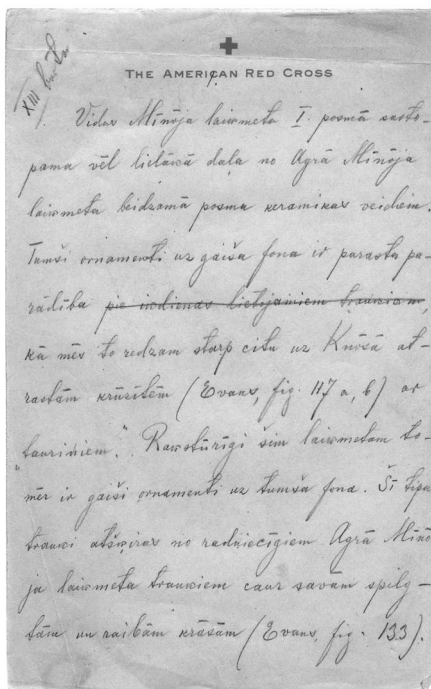 XIII
THE AMERICAN RED CROSS
Vidus Mīnōja laikmeta I. posmā sasto-
pama vēl lielākā daļa no Agrā Mīnōja
laikmeta beidzamā posma keramikas veidiem.
Tumši ornamenti uz gaiša fona ir parasta pa-
rādība pie ikdienas lietojamiem traukiem,
kā mēs to redzam starp citu uz Knōsā at-
rastām krūzītēm (Evans, fig. 117 a, b) ar
"tauriņiem". Raksturīgi šim laikmetam to-
mēr ir gaiši ornamenti uz tumša fona. Šī tipa
trauki atšķiras no radniecīgiem Agrā Mīnō
ja laikmeta traukiem caur savām spilg-
tām un raibām krāsām (Evans, fig. 133).